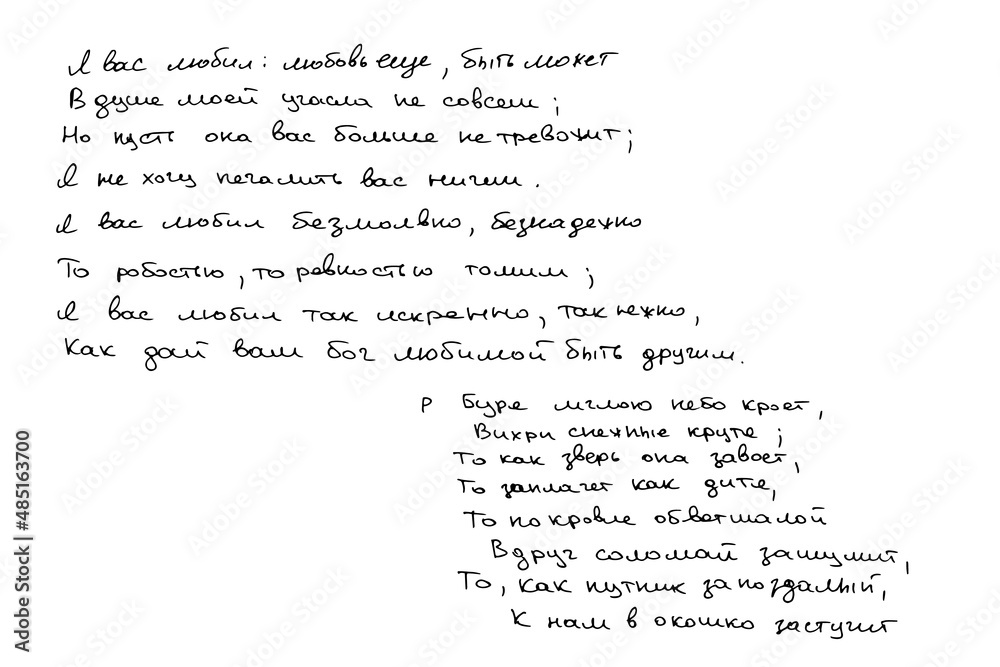 Я вас любил: любовь еще, быть может
В душе моей угасла не совсем;
Но пусть она вас больше не тревожит;
Я не хочу печалить вас ничем.
Я вас любил безмолвно, безнадежно
То робостью, то ревностью томим;
Я вас любил так искренно, так нежно,
Как дай вам бог любимой быть другим.
Р Буря мглою небо кроет,
Вихри снежные крутя;
То как зверь она завоет,
То заплачет как дитя,
То по кровле обветшалой
Вдруг соломай зашумит,
То, как путник запоздалый,
К нам в окошко застучит
Adobe Stock | #485163700